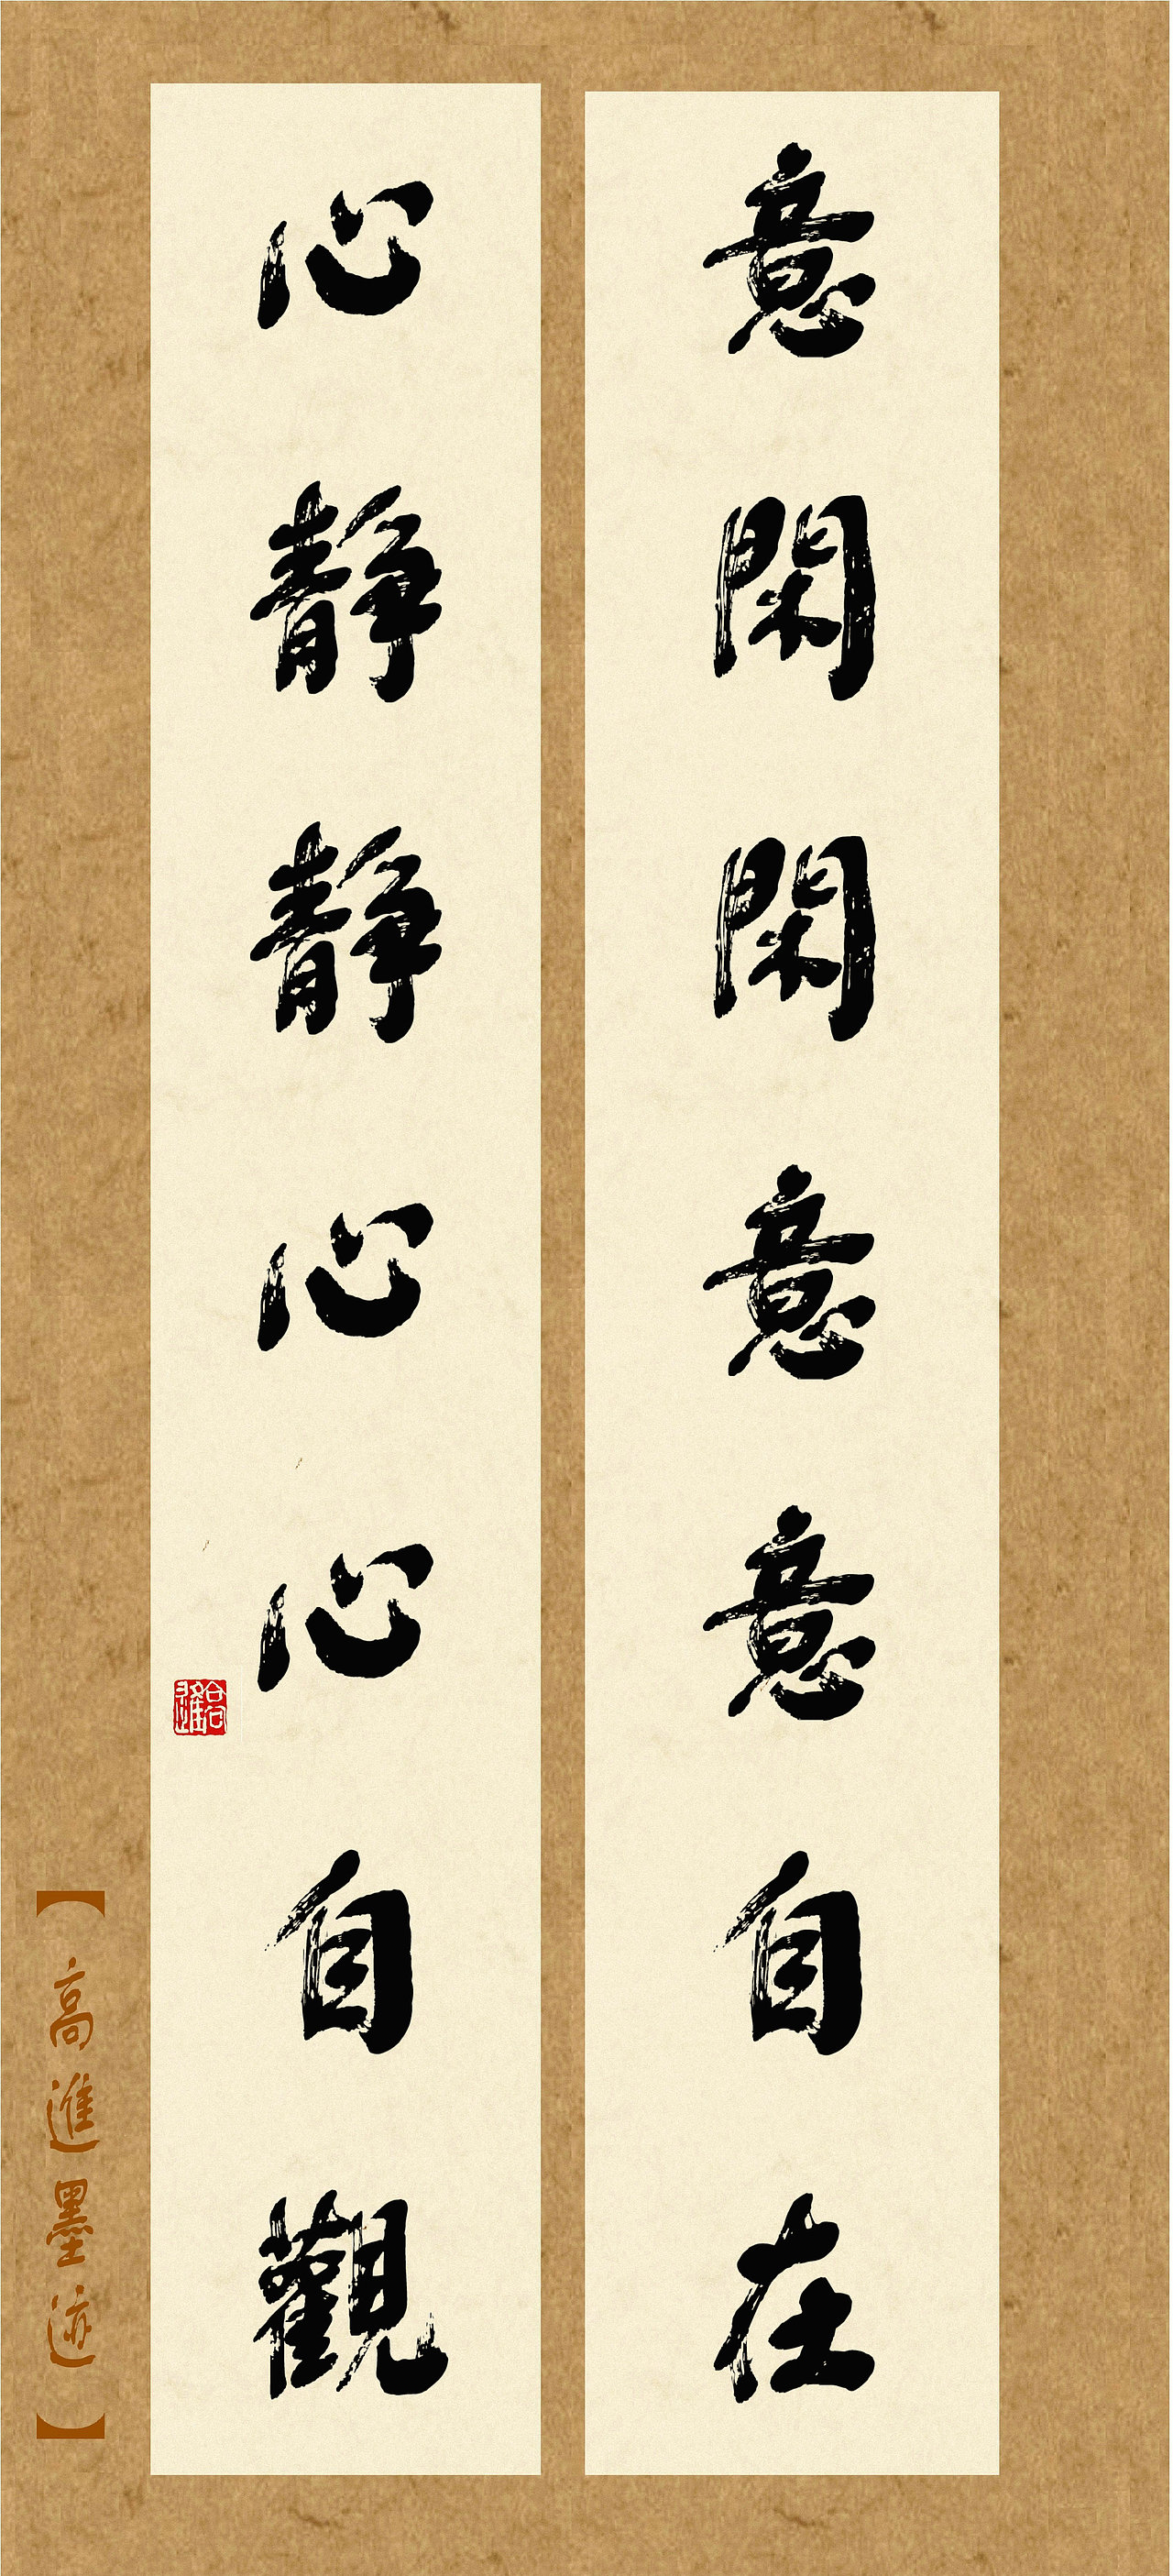 意閑閑意意自在
心靜靜心心自觀
高進
【高進墨迹】